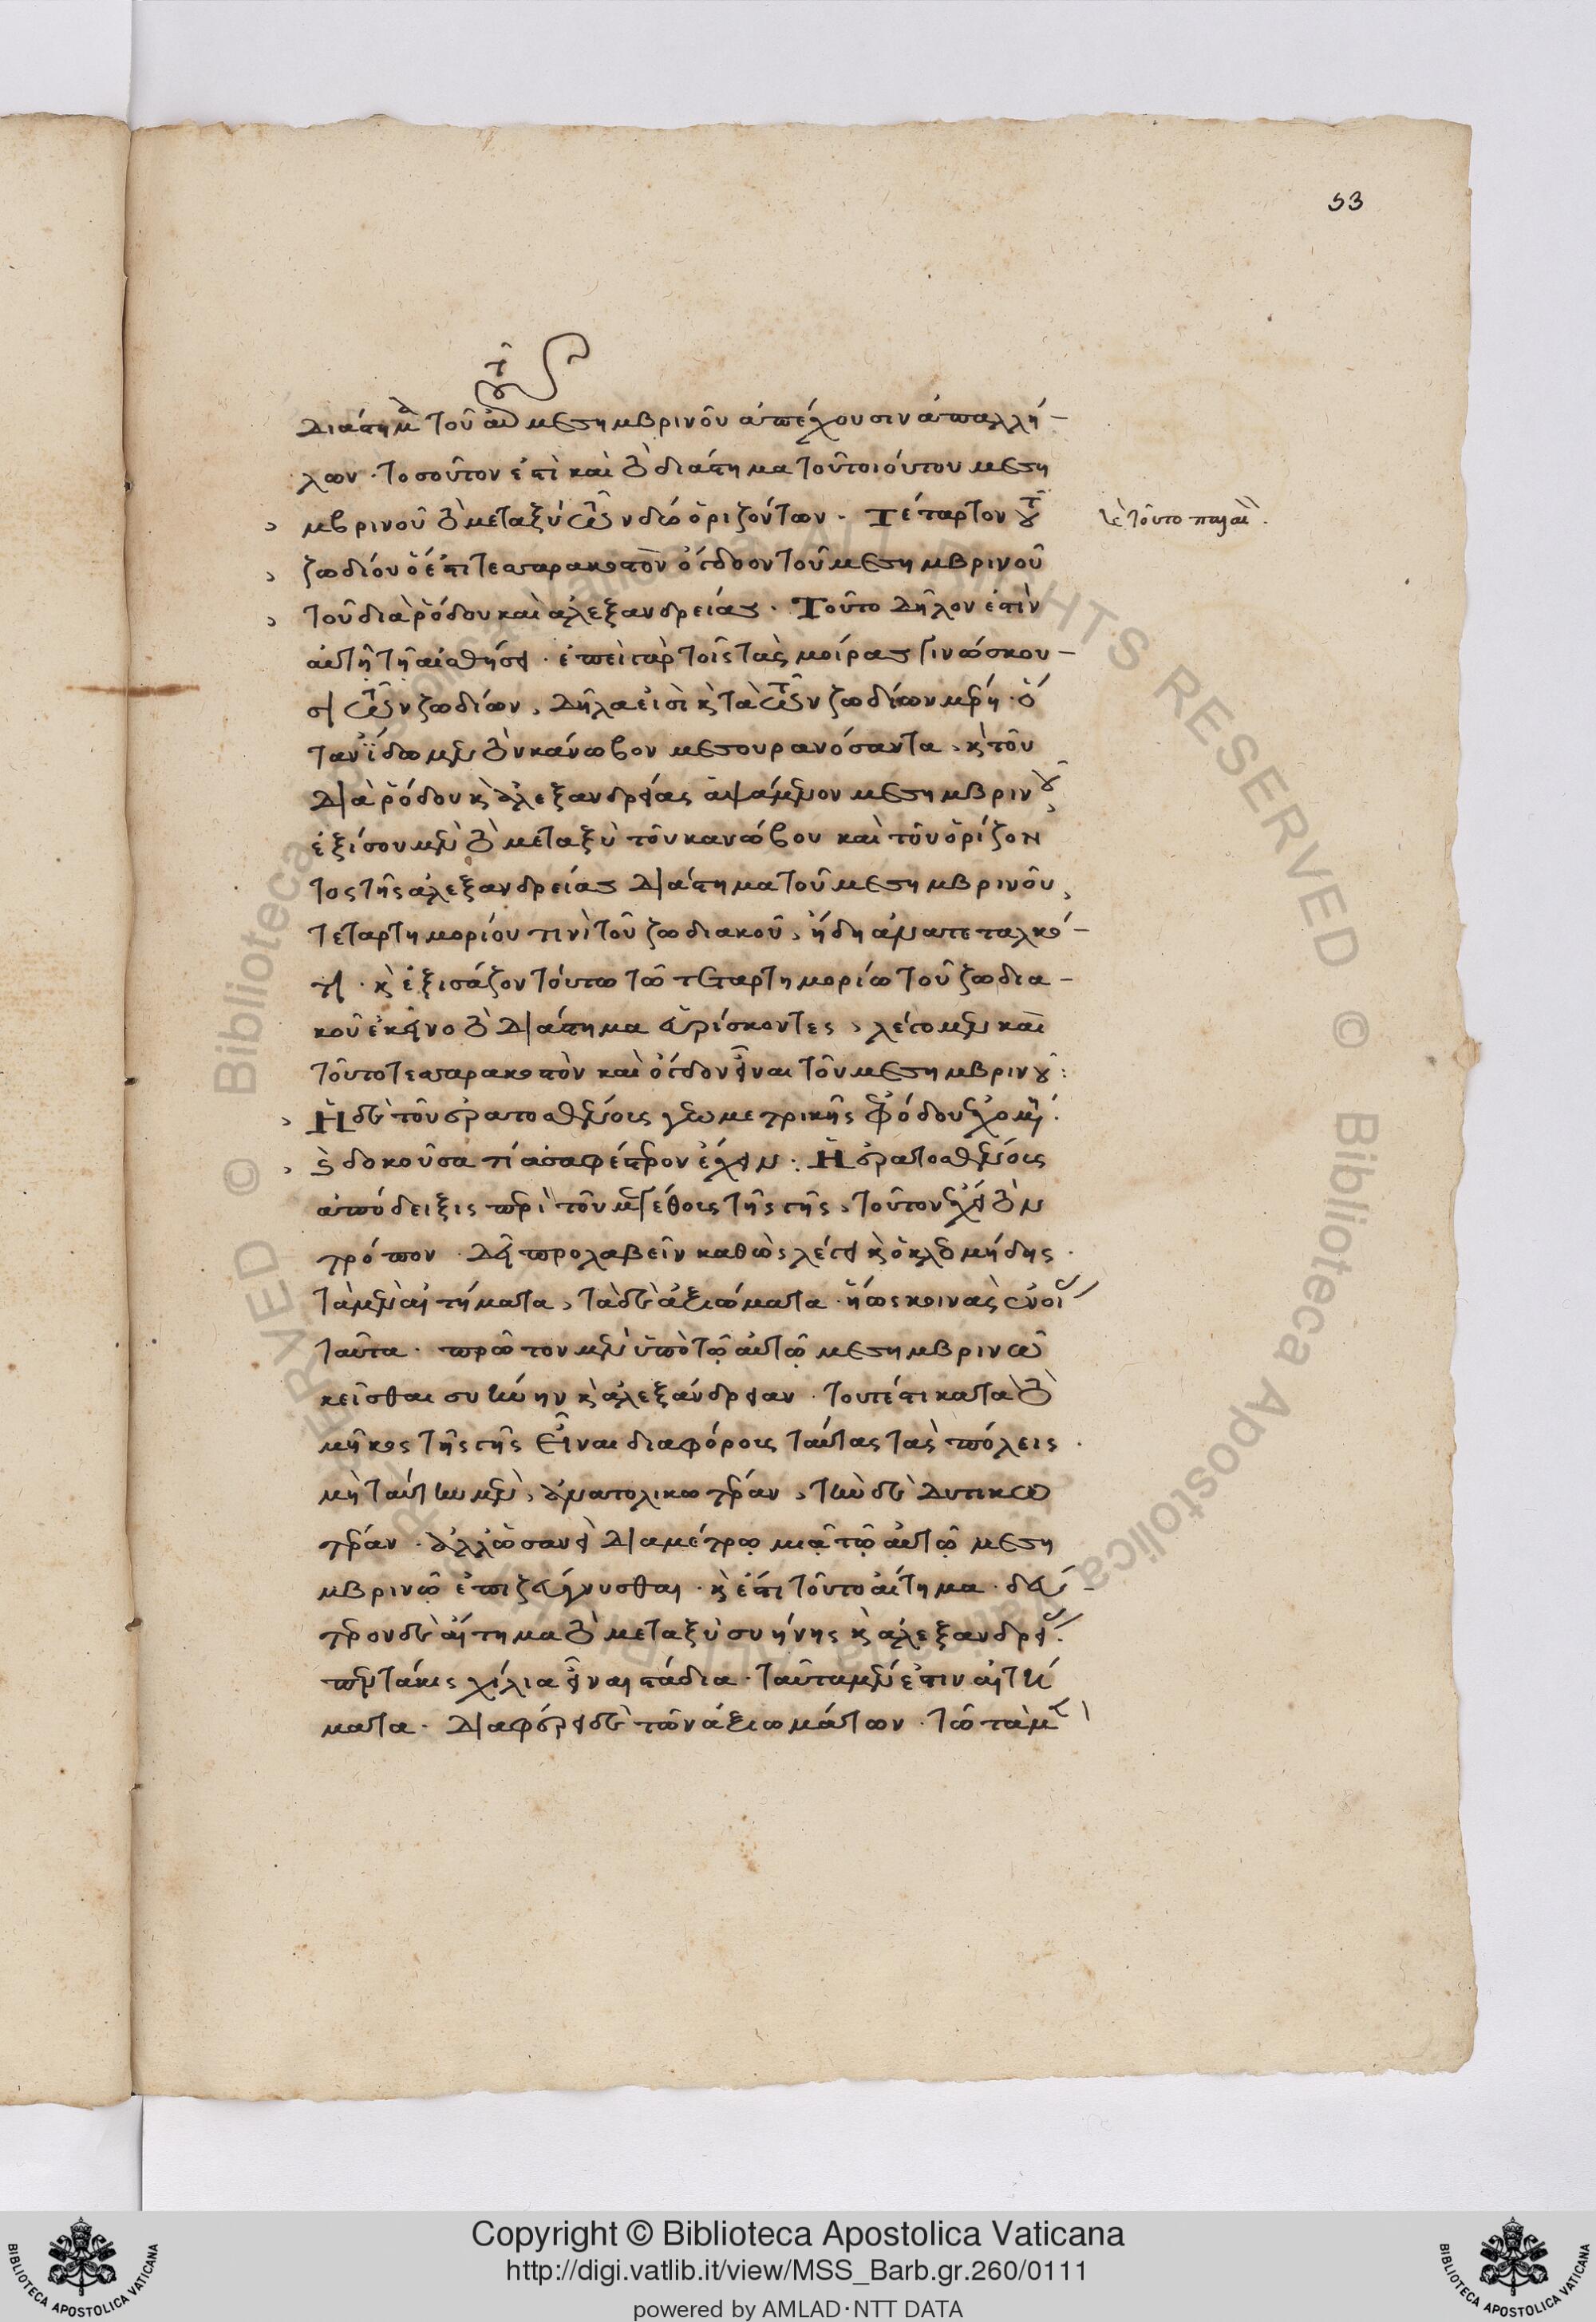 53
διάστημα τοῦ αὐτοῦ μεσημβρινοῦ ἀπέχουσιν ἀπ' ἀλλή-
λων · τοσοῦτον ἐστὶ καὶ τὸ διάστημα τοῦ τοιούτου μεση
μβρινοῦ τὸ μεταξὺ τῶν δύο ὁριζόντων · Τέταρτον τοῦ
ζωδίου ὅ ἐστι τεσσαρακοστὸν ὄγδοον τοῦ μεσημβρινοῦ
τοῦ διὰ ῥόδου καὶ ἀλεξανδρείας · Τοῦτο δῆλον ἐστὶν
αὐτῇ τῇ αἰσθήσει · ἐπεὶ γὰρ τοῖς τὰς μοίρας γινώσκου-
σι τῶν ζωδίων, δῆλα εἰσὶ καὶ τὰ τῶν ζωδίων μέρη · ὅ
ταν ἴδωμεν τὸν κάνωβον μεσουρανήσαντα, καὶ τοῦ
διὰ ῥόδου καὶ ἀλεξανδρείας ἁψάμενον μεσημβρινοῦ,
ἐξίσου μὲν τὸ μεταξὺ τοῦ κανώβου καὶ τοῦ ὁρίζον
τος τῆς ἀλεξανδρείας διάστημα τοῦ μεσημβρινοῦ,
τεταρτημορίου τινὶ τοῦ ζωδιακοῦ, ἤδη ἀνατεταλκό-
τι · καὶ ἐξισάζον τούτω τῶ τεταρτημορίω τοῦ ζωδια-
κοῦ ἐκεῖνο τὸ διάστημα εὑρίσκοντες, λέγομεν καὶ
τοῦτο τεσσαρακοστὸν καὶ ὄγδον εἶναι τοῦ μεσημβρινοῦ:
Ἡ δὲ τοῦ ἐρατοσθένους γεωμετρικῆς ἐφόδου ἐχομέν.
δοκοῦσα τί ἀσαφέστερον ἔχειν: Ἡ ἐρατοσθένους
ἀπόδειξις περὶ τοῦ μεγέθους τῆς γῆς, τοῦτον ἔχει τὸν
τρόπον · δεῖ προλαβεῖν καθὼς λέγει καὶ ὁ κλεομήδης ·
τὰ μὲν αἰτήματα, τὰ δὲ ἀξιώματα · ἤως κοινὰς ἐννοί
ταῦτα · πρῶτον μὲν ὑπὸ τῷ αὐτῷ μεσημβρινῶ
κεῖσθαι συήνην καὶ ἀλεξάνδρειαν · τουτέστι κατὰ τὸ
μῆκος τῆς γῆς εἶναι διαφόρους ταύτας τὰς πόλεις ·
μὴ ταύτην μὲν, ἀνατολικωτέραν, τὴν δὲ δυτικω
τέραν · ἀλλ' ὡσανεὶ διαμέτρῳ μιᾷ τῷ αὐτῷ μεση
μβρινῷ ἐπιζεύγνυσθαι · καὶ ἔστι τοῦτο αἴτημα · δεύ-
τερον δὲ αἴτημα τὸ μεταξὺ συήνης καὶ ἀλεξανδρεί.
πεντάκις χίλια εἶναι στάδια · ταῦτα μὲν ἐστιν αἰτή
ματα · διαφέρει δὲ τῶν ἀξιωμάτων · τῶ τὰ μὲν